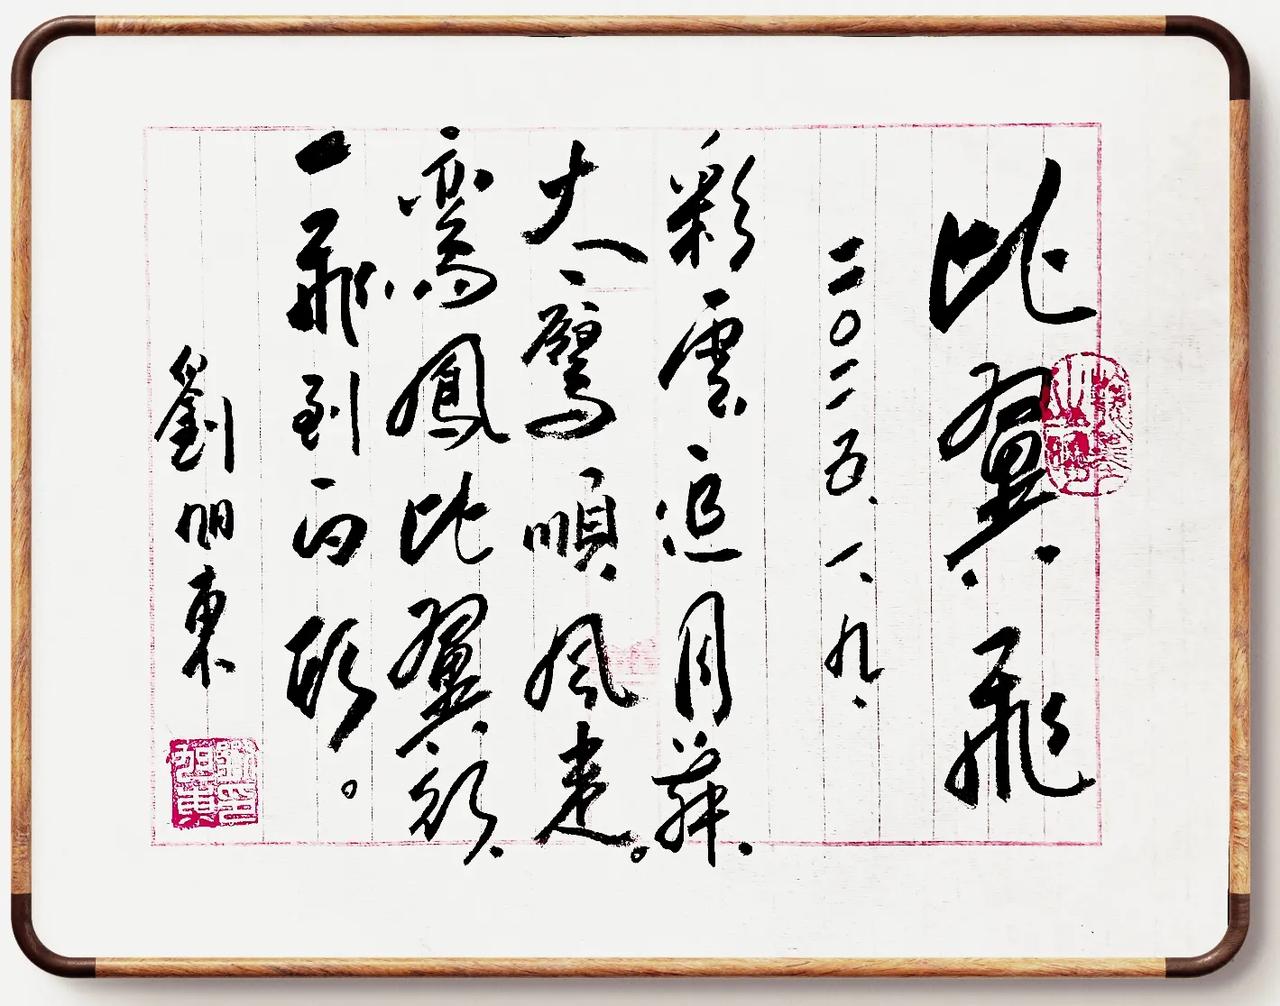 比翼飛
二〇二五.一.九.
彩雲追月舞.
大順風走。
鸞鳳比翼.
一飛到白頭。
劉旭東
劉印旭東